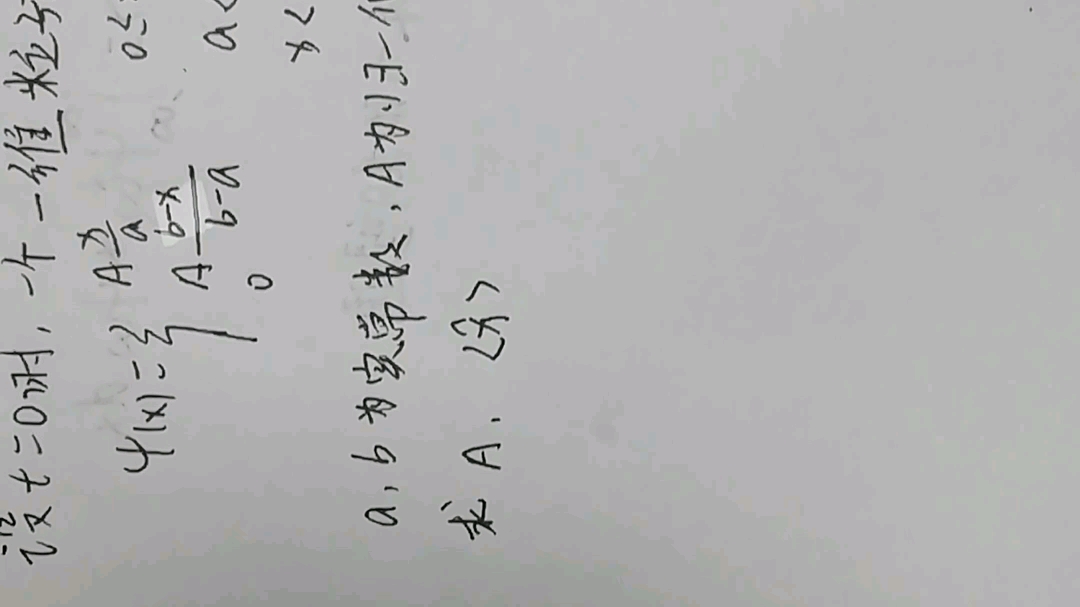 设 t=0时, 一个一维粒子
ψ(x)={ A x/a 0≤
A (b-x)/(b-a) a<
0 x<
a, b 为实常数, A为归一
求 A, <x̂>